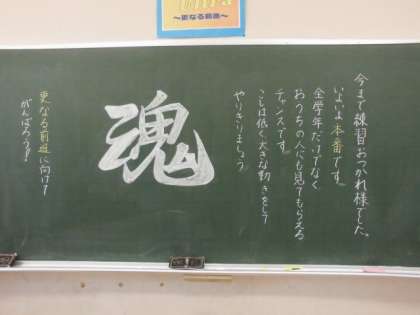 ～更なる前進～
今まで練習おつかれ様でした。
いよいよ本番です。
全学年だけでなく
おうちの人にも見てもらえる
チャンスです。
こしは低く大きな動きをして
やりきりましょう
魂
更なる前進に向けて
がんばろう！